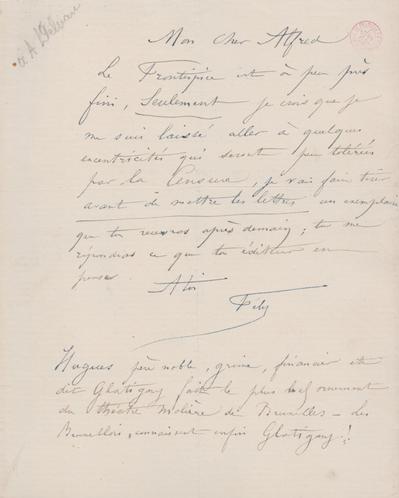 à A. Delvau
Mon cher Alfred
Le Frontispice est à peu près
fini, Seulement je crois que je
me suis laissé aller à quelques
excentricités qui seront peu tolérées
par la Censure, je vais faire tirer
avant de mettre les lettres un exemplaire
que tu recevras après demain ; tu me
répondras ce que ton éditeur en
pense.
A toi
Fély
Hugues père noble, grime, financier etc
dit Glatigny fait le plus bel ornement
du théâtre Molière de Bruxelles – les
Bruxellois, connaissent enfin Glatigny !